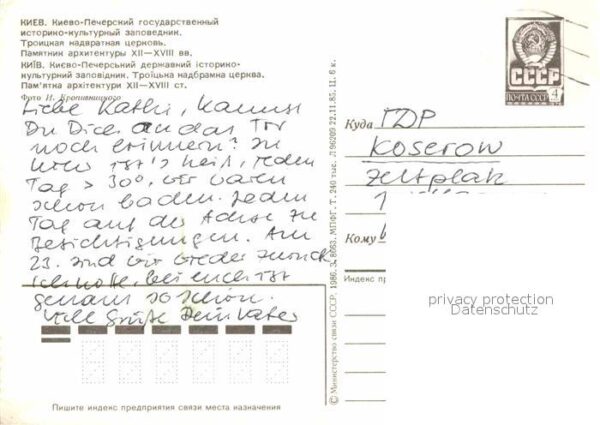 КИЕВ. Киево-Печерский государственный
историко-культурный заповедник.
Троицкая надвратная церковь.
Памятник архитектуры XII—XVIII вв.
КИЇВ. Києво-Печерський державний історико-
культурний заповідник. Троїцька надбрамна церква.
Пам'ятка архітектури XII—XVIII ст.
Фото И. Кропивницкого
Liebe Kathi, kannst
Du Dich an das Tor
noch erinnern?
ist's heiß, jeden
Tag > 30°, wir waren
schon baden. Jeden
Tag auf der Achse zu
Besichtigungen. Am
23. sind wir wieder zurück
Ich hoffe, bei euch ist
genauso schön.
Viele Grüße Dein Vater
Пишите индекс предприятия связи места назначения
© Министерство связи СССР. 1986. З. 8663. МПФГ. Т. 240 тыс. Л 96209 22.11.85. Ц. 6 к.
СССР
ПОЧТА СССР
4
Куда ГДР
Koserow
Zeltplatz
Кому
Индекс пр
privacy protection
Datenschutz